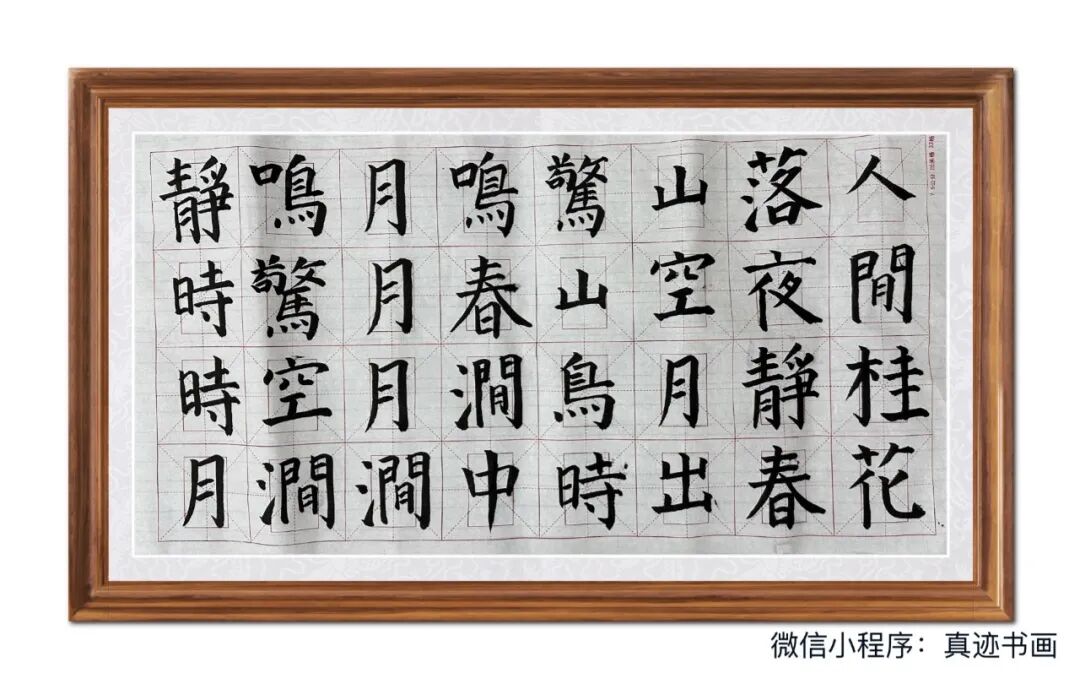 人閒桂花
落夜靜春
山空月出
驚山鳥時
鳴春澗中
月月月澗
鳴驚空澗
靜時時月
微信小程序：真迹书画